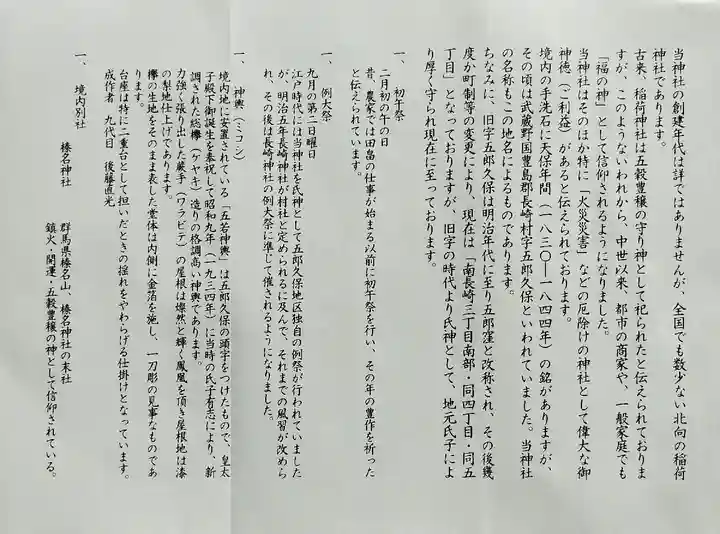 当神社の創建年代は詳ではありませんが、全国でも数少ない北向の稲荷
神社であります。
古来、稲荷神社は五穀豊穣の守り神として祀られたと伝えられておりま
すが、このようないわれから、中世以来、都市の商家や、一般家庭でも
「福の神」として信仰されるようになりました。
当神社はそのほか特に「火災災害」などの厄除けの神社として偉大な御
神徳(ご利益)があると伝えられております。
境内の手洗石に天保年間(一八三〇―一八四四年)の銘がありますが、
その頃は武蔵野国豊島郡長崎村字五郎久保といわれていました。当神社
の名称もこの地名によるものであります。
ちなみに、旧字五郎久保は明治年代に至り五郎窪と改称され、その後幾
度か町制等の変更により、現在は「南長崎三丁目南部・同四丁目・同五
丁目」となっておりますが、旧字の時代より氏神として、地元氏子によ
り厚く守られ現在に至っております。
一、初午祭
二月初の午の日
昔、農家では田畠の仕事が始まる以前に初午祭を行い、その年の豊作を祈った
と伝えられています。
一、例大祭
九月の第二日曜日
江戸時代には当神社を氏神として五郎久保地区独自の例祭が行われていました
が、明治五年長崎神社が村社と定められるに及んで、それまでの風習が改めら
れ、その後は長崎神社の例大祭に準じて催されるようになりました。
一、神輿(ミコシ)
境内地に安置されている「五若神輿」は五郎久保の頭字をつけたもので、皇太
子殿下御誕生を奉祝して昭和九年(一九三四年)に当時の氏子有志により、新
調された総欅(ケヤキ)造りの格調高い神輿であります。
力強く張り出した蕨手(ワラビテ)の屋根は燦然と輝く鳳凰を頂き屋根地は漆
の梨地仕上げであります。
欅の生地をそのまま表した堂体は内側に金箔を施し、一刀彫の見事なものであ
ります。
台座は特に二重台として担いだときの揺れをやわらげる仕掛けとなっています。
成作者 九代目 後藤直光
一、境内別社
榛名神社 群馬県榛名山、榛名神社の末社
鎮火・開運・五穀豊穣の神として信仰されている。